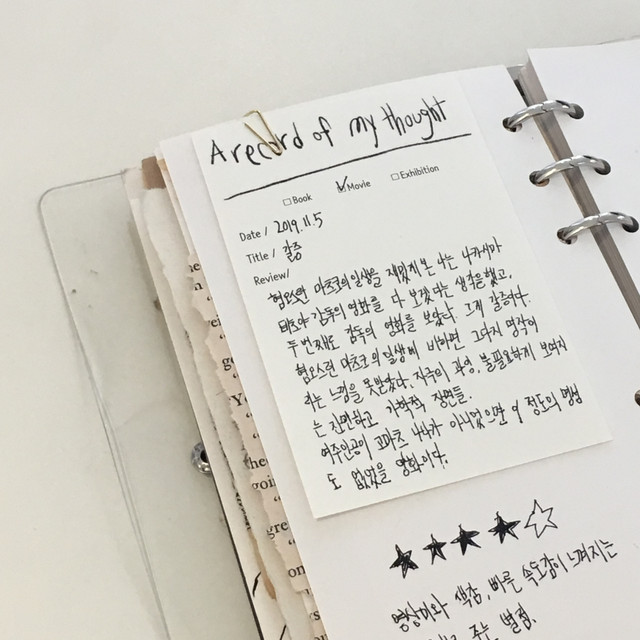 A record of my thought
□Book ☑Movie □Exhibition
Date / 2019.11.5
Title / 갈증
Review/
혐오스런 마츠코의 일생을 재밌게 본 나는 나카시마
테츠야 감독의 영화를 다 보겠다는 생각을 했고,
두번째로 감독의 영화를 보았다. 그게 갈증이다.
혐오스런 마츠코의 일생에 비하면 그다지 명작이
라는 느낌을 못받았다. 자극의 과잉, 불필요하게 보여지
는 잔인하고 가학적 장면들.
여주인공이 고마츠 나나가 아니었으면 이 정도의 명성
도 없었을 영화이다.
★★★★☆
영상미와 색감, 빠른 속도감이 느껴지는
주는 별점.